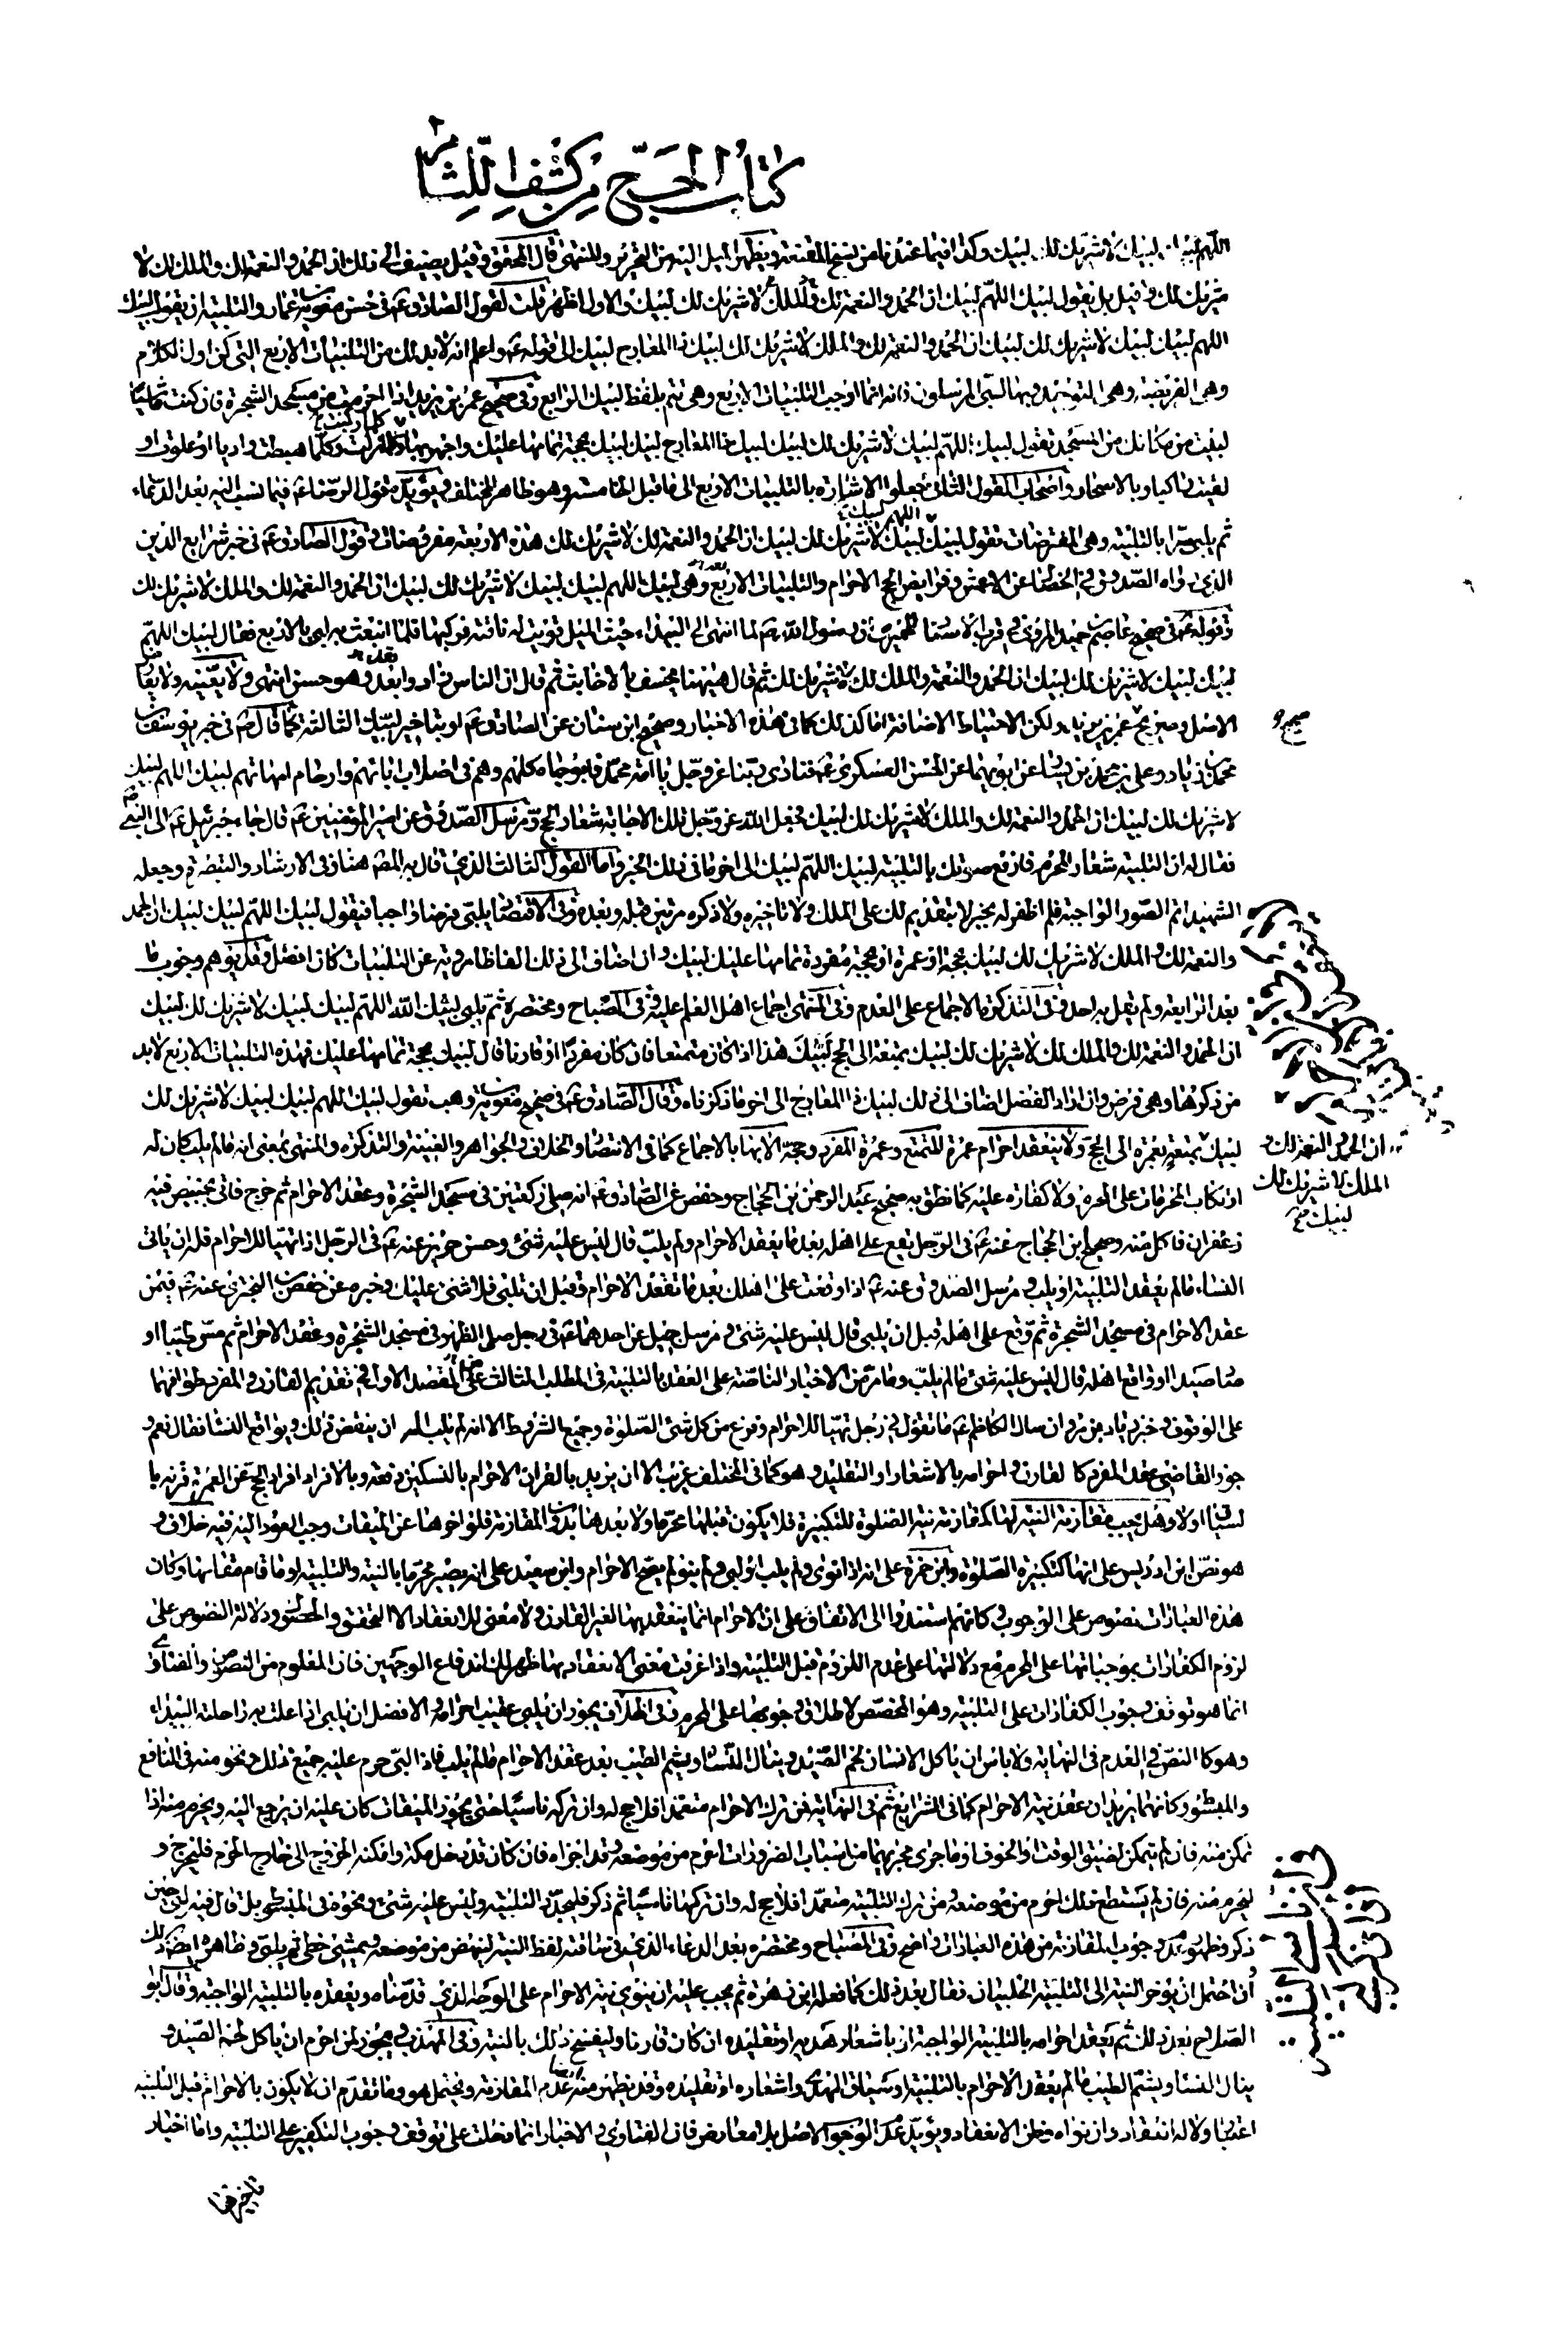 كتاب الحج من كشف اللثام
اللهم لبيك لبيك لا شريك لك لبيك وكذا فيما عندنا من نسخ المقنعة ويظهر الميل اليه من التحرير والمنتهى قال المحقق وقيل يضيف الى ذلك ان الحمد والنعمة لك والملك لك لا
شريك لك وقيل بل يقول لبيك اللهم لبيك ان الحمد والنعمة لك والملك لا شريك لك لبيك والاول اظهر قلت لقول الصادق ع في حسن معوية بن عمار والتلبية ان يقول لبيك
اللهم لبيك لبيك لا شريك لك لبيك ان الحمد والنعمة لك والملك لا شريك لك لبيك ذا المعارج لبيك الى قوله ع واعلم انه لا بد لك من التلبيات الاربع التي كن اول الكلام
وهي الفريضة وهي التوحيد وبها لبى المرسلون فانه انما اوجب التلبيات الاربع وهي تتم بلفظ لبيك الرابع وفي صحيح عمر بن يزيد اذا احرمت من مسجد الشجرة فان كنت ماشيا
لبيت من مكانك من المسجد تقول لبيك اللهم لبيك لا شريك لك لبيك لبيك ذا المعارج لبيك لبيك بحجة تمامها عليك واجهر بها كلما ركبت وكلما نزلت وكلما هبطت واديا او علوت او
لقيت راكبا وبالاسحار واصحاب القول الثاني جعلوا الاشارة بالتلبيات الاربع الى ما قبل الخامسة وهو ظاهر المختلف ويؤيده قول الرضا ع فيما نسب اليه بعد الدعاء
ثم يلبي سرا بالتلبية وهي المفترضات تقول لبيك اللهم لبيك لبيك لا شريك لك لبيك ان الحمد والنعمة لك لا شريك لك هذه الاربعة مفروضات وقول الصادق ع في خبر شرايع الدين
الذي رواه الصدوق في الخصال عن الاعمش وفرايض الحج الاحرام والتلبيات الاربع وهي لبيك اللهم لبيك لبيك لا شريك لك لبيك ان الحمد والنعمة لك والملك لا شريك لك
وقوله ع في صحيح عاصم بن حميد المروي في قرب الاسناد للحميري ان رسول الله ص لما انتهى الى البيداء حيث الميل قربت له ناقته فركبها فلما انبعثت به لبى بالاربع فقال لبيك اللهم
لبيك لبيك لا شريك لك لبيك ان الحمد والنعمة والملك لك لا شريك لك ثم قال هيهنا يخسف بالاخابث ثم قال ان الناس زادوا بعد وهو حسن انتهى ولا يعينه ولا يعا
الاصل وصريح عمر بن يزيد ولكن الاحتياط الاضافة اما كذلك كما في هذه الاخبار وصحيح ابن سنان عن الصادق ع او بتاخير لبيك الثالثة كما قال ع في خبر يوسف بن
صحيح
محمد بن زياد وعلي بن محمد بن سيار عن ابويهما عن الحسن العسكري ع فنادى ربنا عز وجل يا امة محمد فاجوجاه كلهم وهم في اصلاب ابائهم وارحام امهاتهم لبيك اللهم لبيك
لا شريك لك لبيك ان الحمد والنعمة لك والملك لا شريك لك لبيك فجعل الله عز وجل تلك الاجابة شعار الحج ومرسل الصدوق عن امير المؤمنين ع قال جاء جبرئيل ع الى النبي ص
فقال له ان التلبية شعار المحرم فارفع صوتك بالتلبية لبيك اللهم لبيك الى اخر ما في ذلك الخبر واما القول الثالث الذي قال به المص هنا وفي الارشاد والتبصرة وجعله
الشهيد اتم الصور الواجبة فلم اظفر له بخبر لا بتقديم لك على الملك ولا تاخيره ولا ذكره مرتين قبله وبعده وفي الاقتصاد يلبي فرضا واجبا فيقول لبيك اللهم لبيك لبيك ان الحمد
والنعمة لك والملك لا شريك لك لبيك بحجة او عمرة او حجة مفردة تمامها عليك لبيك وان اضاف الى ذلك الفاظا مروية عن التلبيات كان افضل وقد يوهم وجوب ما
بعد الرابعة ولم يقل به احد وفي التذكرة الاجماع على العدم وفي المنتهى اجماع اهل العلم عليه وفي المصباح ومختصره ثم يلبي لبيك الله اللهم لبيك لبيك لا شريك لك لبيك
ان الحمد والنعمة لك والملك لك لا شريك لك لبيك بمتعة الى الحج لبيك هذا اذا كان متمتعا فان كان مفردا او قارنا قال لبيك بحجة تمامها عليك فهذه التلبيات الاربع لا بد
من ذكرها وهي فرض وان اراد الفضل اضاف الى ذلك لبيك ذا المعارج الى اخر ما ذكرناه وقال الصادق ع في صحيح معوية بن وهب تقول لبيك اللهم لبيك لبيك لا شريك لك
لبيك بمتعة بعمرة الى الحج ولا ينعقد احرام عمرة المتمتع وعمرة المفرد وحجه الا بها بالاجماع كما في الانتصار والخلاف والجواهر والغنية والتذكرة والمنتهى بمعنى انه ما لم يلب كان له
ان الحمد والنعمة لك و
الملك لا شريك لك
لبيك صح
ارتكاب المحرمات على المحرم ولا كفارة عليه كما نطق به صحيح عبد الرحمن بن الحجاج وحفص عن الصادق ع انه صلى ركعتين في مسجد الشجرة وعقد الاحرام ثم خرج فاتى بخبيص فيه
زعفران فاكل منه وصحيح ابن الحجاج عنه ع في الرجل يقع على اهله بعد ما يعقد الاحرام ولم يلب قال ليس عليه شيء وحسن حريز عنه ع في الرجل اذا تهيا للاحرام فله ان ياتي
النساء ما لم يعقد التلبية او يلب ومرسل الصدوق عنه ع اذا وقعت على اهلك بعد ما تعقد الاحرام وقبل ان تلبي فلا شيء عليك وخبره عن حفص بن البختري عنه ع فيمن
عقد الاحرام في مسجد الشجرة ثم وقع على اهله قبل ان يلبي قال ليس عليه شيء ومرسل جميل عن احدهما ع في رجل صلى الظهر في مسجد الشجرة وعقد الاحرام ثم مس طيبا او
صاد صيدا او واقع اهله قال ليس عليه شيء ما لم يلب وما مر من الاخبار الناصة على العقد بالتلبية في المطلب الثالث من المقصد الاول في تقديم القارن والمفرد طوافهما
على الوقوف وخبر زياد بن مروان سال الكاظم ع ما تقول في رجل تهيا للاحرام وفرغ من كل شيء الصلوة وجميع الشروط الا انه لم يلب اله ان ينقض ذلك ويواقع النسا فقال نعم و
جوز القاضي عقد المفرد كالقارن احرامه بالاشعار او التقليد وهو كما في المختلف غريب الا ان يريد بالقران الاحرام بالنسكين دفعة وبالافراد افراد الحج عن العمرة قرنه با
لسياق اولا وهل يجب مقارنة النية لها كمقارنة نية الصلوة للتكبيرة فلا يكون قبلها محرما ولا بعدها بدون المقارنة فلو اخرها عن الميقات وجب العود اليه فيه خلاف و
هو نص ابن ادريس على انها كتكبيرة الصلوة وابن حمزة على انه اذا نوى ولم يلب او لبى ولم ينو لم يصح الاحرام وابن سعيد على انه يصير محرما بالنية والتلبية او ما قام مقامها وكان
هذه العبارات نصوص على الوجوب وكانهم استندوا الى الاتفاق على ان الاحرام انما ينعقد بها لغير القارن ولا معنى للانعقاد الا التحقق والحصول ودلالة النصوص على
لزوم الكفارات بموجباتها على المحرم مع دلالتها على عدم اللزوم قبل التلبية واذا عرفت معنى الانعقاد بها ظهر لك اندفاع الوجهين فان المعلوم من النصوص والفتاوي
انما هو توقف وجوب الكفارات على التلبية وهو المخصص لاطلاق وجوبها على المحرم وفي اطلاق يجوز ان يلبي عقيب احرامه والافضل ان يلبي اذا علت به راحلته البيداء
وهو كالنص في العدم في النهاية ولا باس ان ياكل الانسان لحم الصيد وينال النساء ويشم الطيب بعد عقد الاحرام ما لم يلب فاذا لبى حرم عليه جميع ذلك ونحو منه في النافع
والمبسوط وكانهما يريدان عقد نية الاحرام كما في الشرايع ثم في النهاية فمن ترك الاحرام متعمدا فلا حج له وان تركه ناسيا حتى يجوز الميقات كان عليه ان يرجع اليه ويحرم منه اذا
تمكن منه فان لم يتمكن لضيق الوقت او الخوف او ما جرى مجريهما من اسباب الضرورات احرم من موضعه وقد اجزاه فان كان قد دخل مكة وامكنه الخروج الى خارج الحرم فليخرج و
ليحرم منه فان لم يستطع ذلك احرم من موضعه ومن ترك التلبية متعمدا فلا حج له وان تركها ناسيا ثم ذكر فليجدد التلبية وليس عليه شيء ونحوه في المبسوط بل قال فيه لبى حين
ذكر وظهور عدم وجوب المقارنة من هذه العبارات واضح وفي المصباح ومختصره بعد الدعاء الذي في ساقته لفظ النية لينهض من موضعه ويمشي خطى ثم يلبي وظاهره ايضا ذلك
وان احتمل ان يؤخر النية الى التلبية الحلبيان فقال بعد ذلك كما فعله ابن زهرة ثم يجب عليه ان ينوي نية الاحرام على الوجه الذي قدمناه ويعقده بالتلبية الواجبة وقال ابو
الصلاح بعد ذلك ثم يعقد احرامه بالتلبية الواجبة او باشعار هديه او تقليده ان كان قارنا وليفتتح ذلك بالنية وفي المهذب ويجوز لمن احرم ان ياكل لحم الصيد و
ينال النسا ويشم الطيب ما لم يعقد الاحرام بالتلبية او سياق الهدي واشعاره او تقليده وقد يظهر منه عدم المقارنة ويحتمل هو وما تقدم ان لا يكون بالاحرام قبل التلبية
اعتبارا ولا له انعقاد وان نواه فعلى الانعقاد ويؤيد عدم الوجوب الاصل بلا معارض فان الفتاوي والاخبار انما دلت على توقف وجوب التكفير على التلبية واما اخبار
تاخيرها